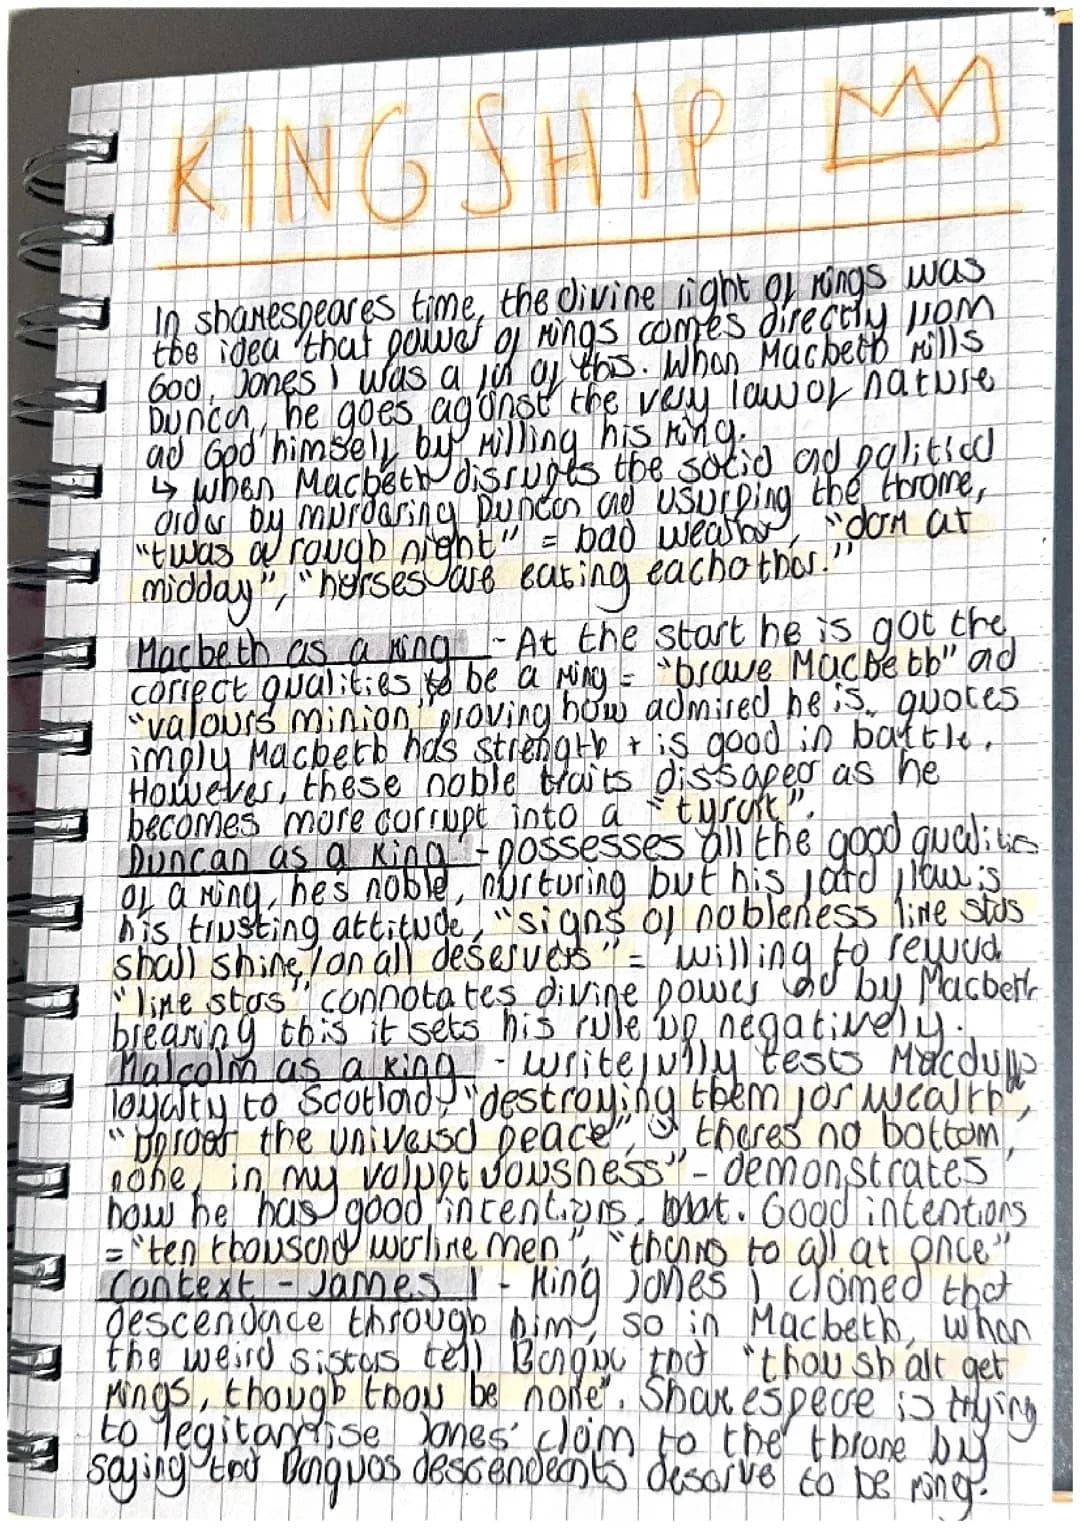 KINGSHIP
In shakespeares time, the divine right of kings was
the idea that power of kings comes directly from
God. James I was a fan of this. When Macbeth kills
Duncan, he goes against the very law of nature
and God himself by killing his king.
↳ when Macbeth disrupts the social and political
order by murdering Duncan and usurping the throne,
"twas a rough night" = bad weather, "dark at
midday", "horses are eating eachother."
Macbeth as a king - At the start he is got the
correct qualities to be a king = "brave Macbeth" and
"valours minion" proving how admired he is, quotes
imply Macbeth has strength + is good in battle.
However, these noble traits dissapear as he
becomes more corrupt into a "tyrant".
Duncan as a king - possesses all the good qualities
of a king, hes noble, nurturing but his fatal flaw is
his trusting attitude, "signs of nobleness like stars
shall shine/on all deservers" = willing to reward
"like stars" connotates divine power and by Macbeth
breaking this it sets his rule up negatively.
Malcolm as a king - tests Macduffs
loyalty to Scotland, "destroying them for wealth",
"uproar the universal peace", theres no bottom,
none, in my voluptuousness" - demonstrates
how he has good intentions. Good intentions
= "ten thousand warlike men", "thanks to all at once"
Context - James I - King James I claimed that
descendance through him, so in Macbeth, when
the weird sisters tell Banquo that "thou shalt get
kings, though thou be none". Shakespeare is trying
to legitamise James' claim to the throne by
saying that Banquos descendeants deserve to be king.